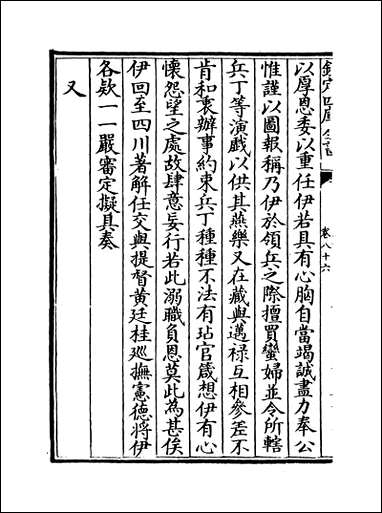 欽定四庫全書
卷八十六
以厚恩委以重任伊若具有心胸自當竭誠盡力奉公
惟謹以圖報稱乃伊於領兵之際擅買蠻婦並令所轄
兵丁等演戲以供其燕樂又在藏與邁祿互相參差不
肯和衷辦事約束兵丁種種不法有玷官箴想伊有心
懷怨望之處故肆意妄行若此溺職負恩莫此為甚俟
伊回至四川著解任交與提督黃廷桂巡撫憲德將伊
各欵一一嚴審定擬具奏
又